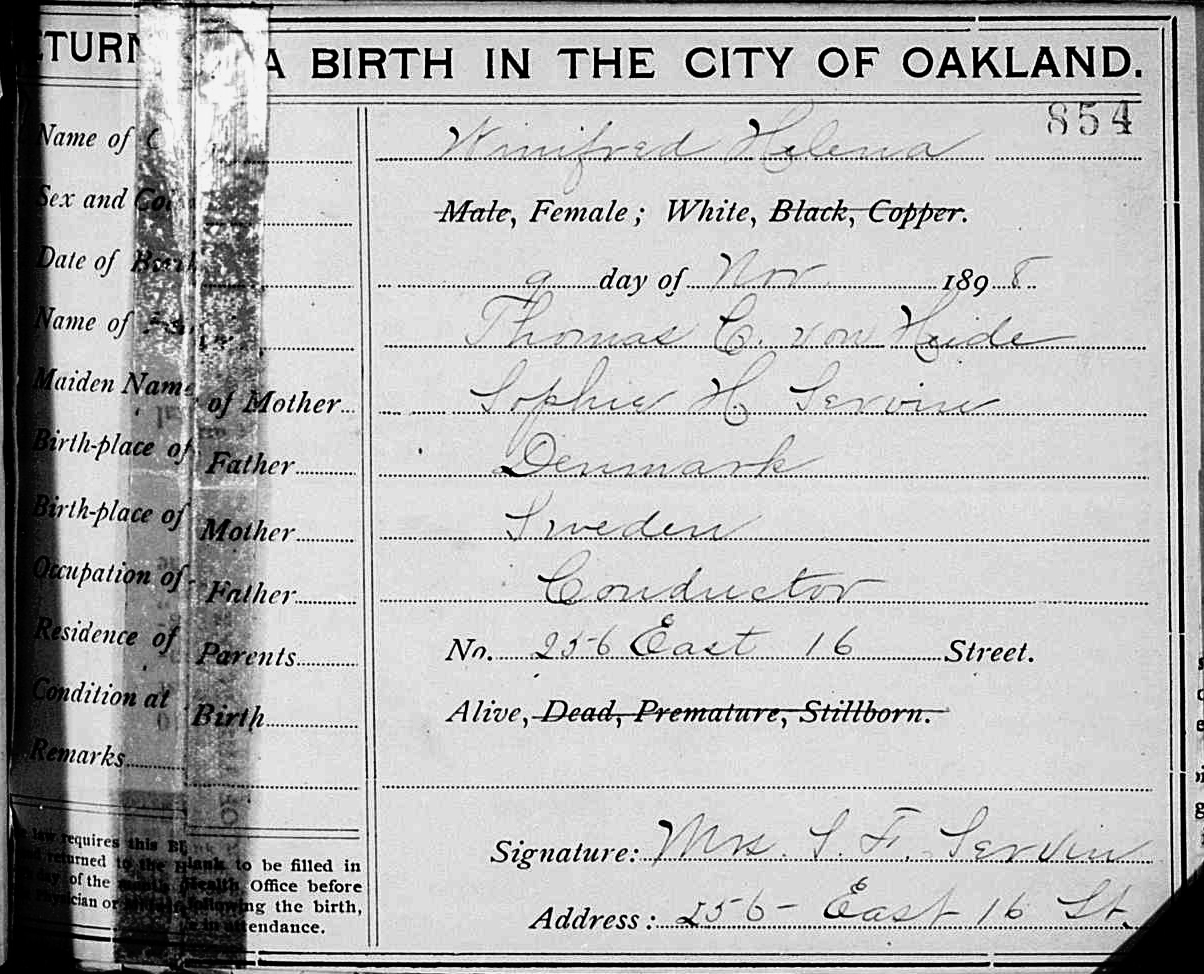 A BIRTH IN THE CITY OF OAKLAND.
854
Name of Winifred Helena
Sex and Male, Female; White, Black, Copper.
Date of 9 day of Nov 1898
Name of Thomas C. von Heide
Maiden Name of Mother Sophie H Servine
Birth-place of Father Denmark
Birth-place of Mother Sweden
Occupation of Father Conductor
Residence of Parents No. 256 East 16 Street.
Condition at Birth Alive, Dead, Premature, Stillborn.
Remarks
Signature: Mrs. S. F. Servin
law requires this to be filled in
returned to the Office before
day of the
the birth,
attendance.
Address: 256 - East 16 St.